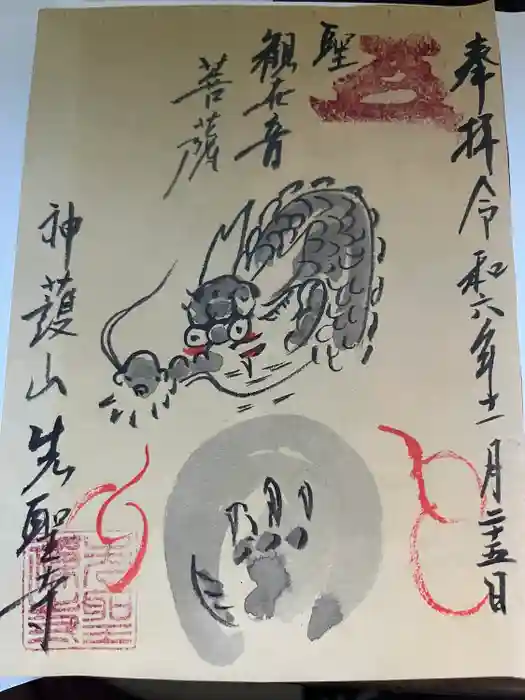 奉拝 令和六年十一月二十五日
聖
観在音
菩薩
神護山 先聖寺